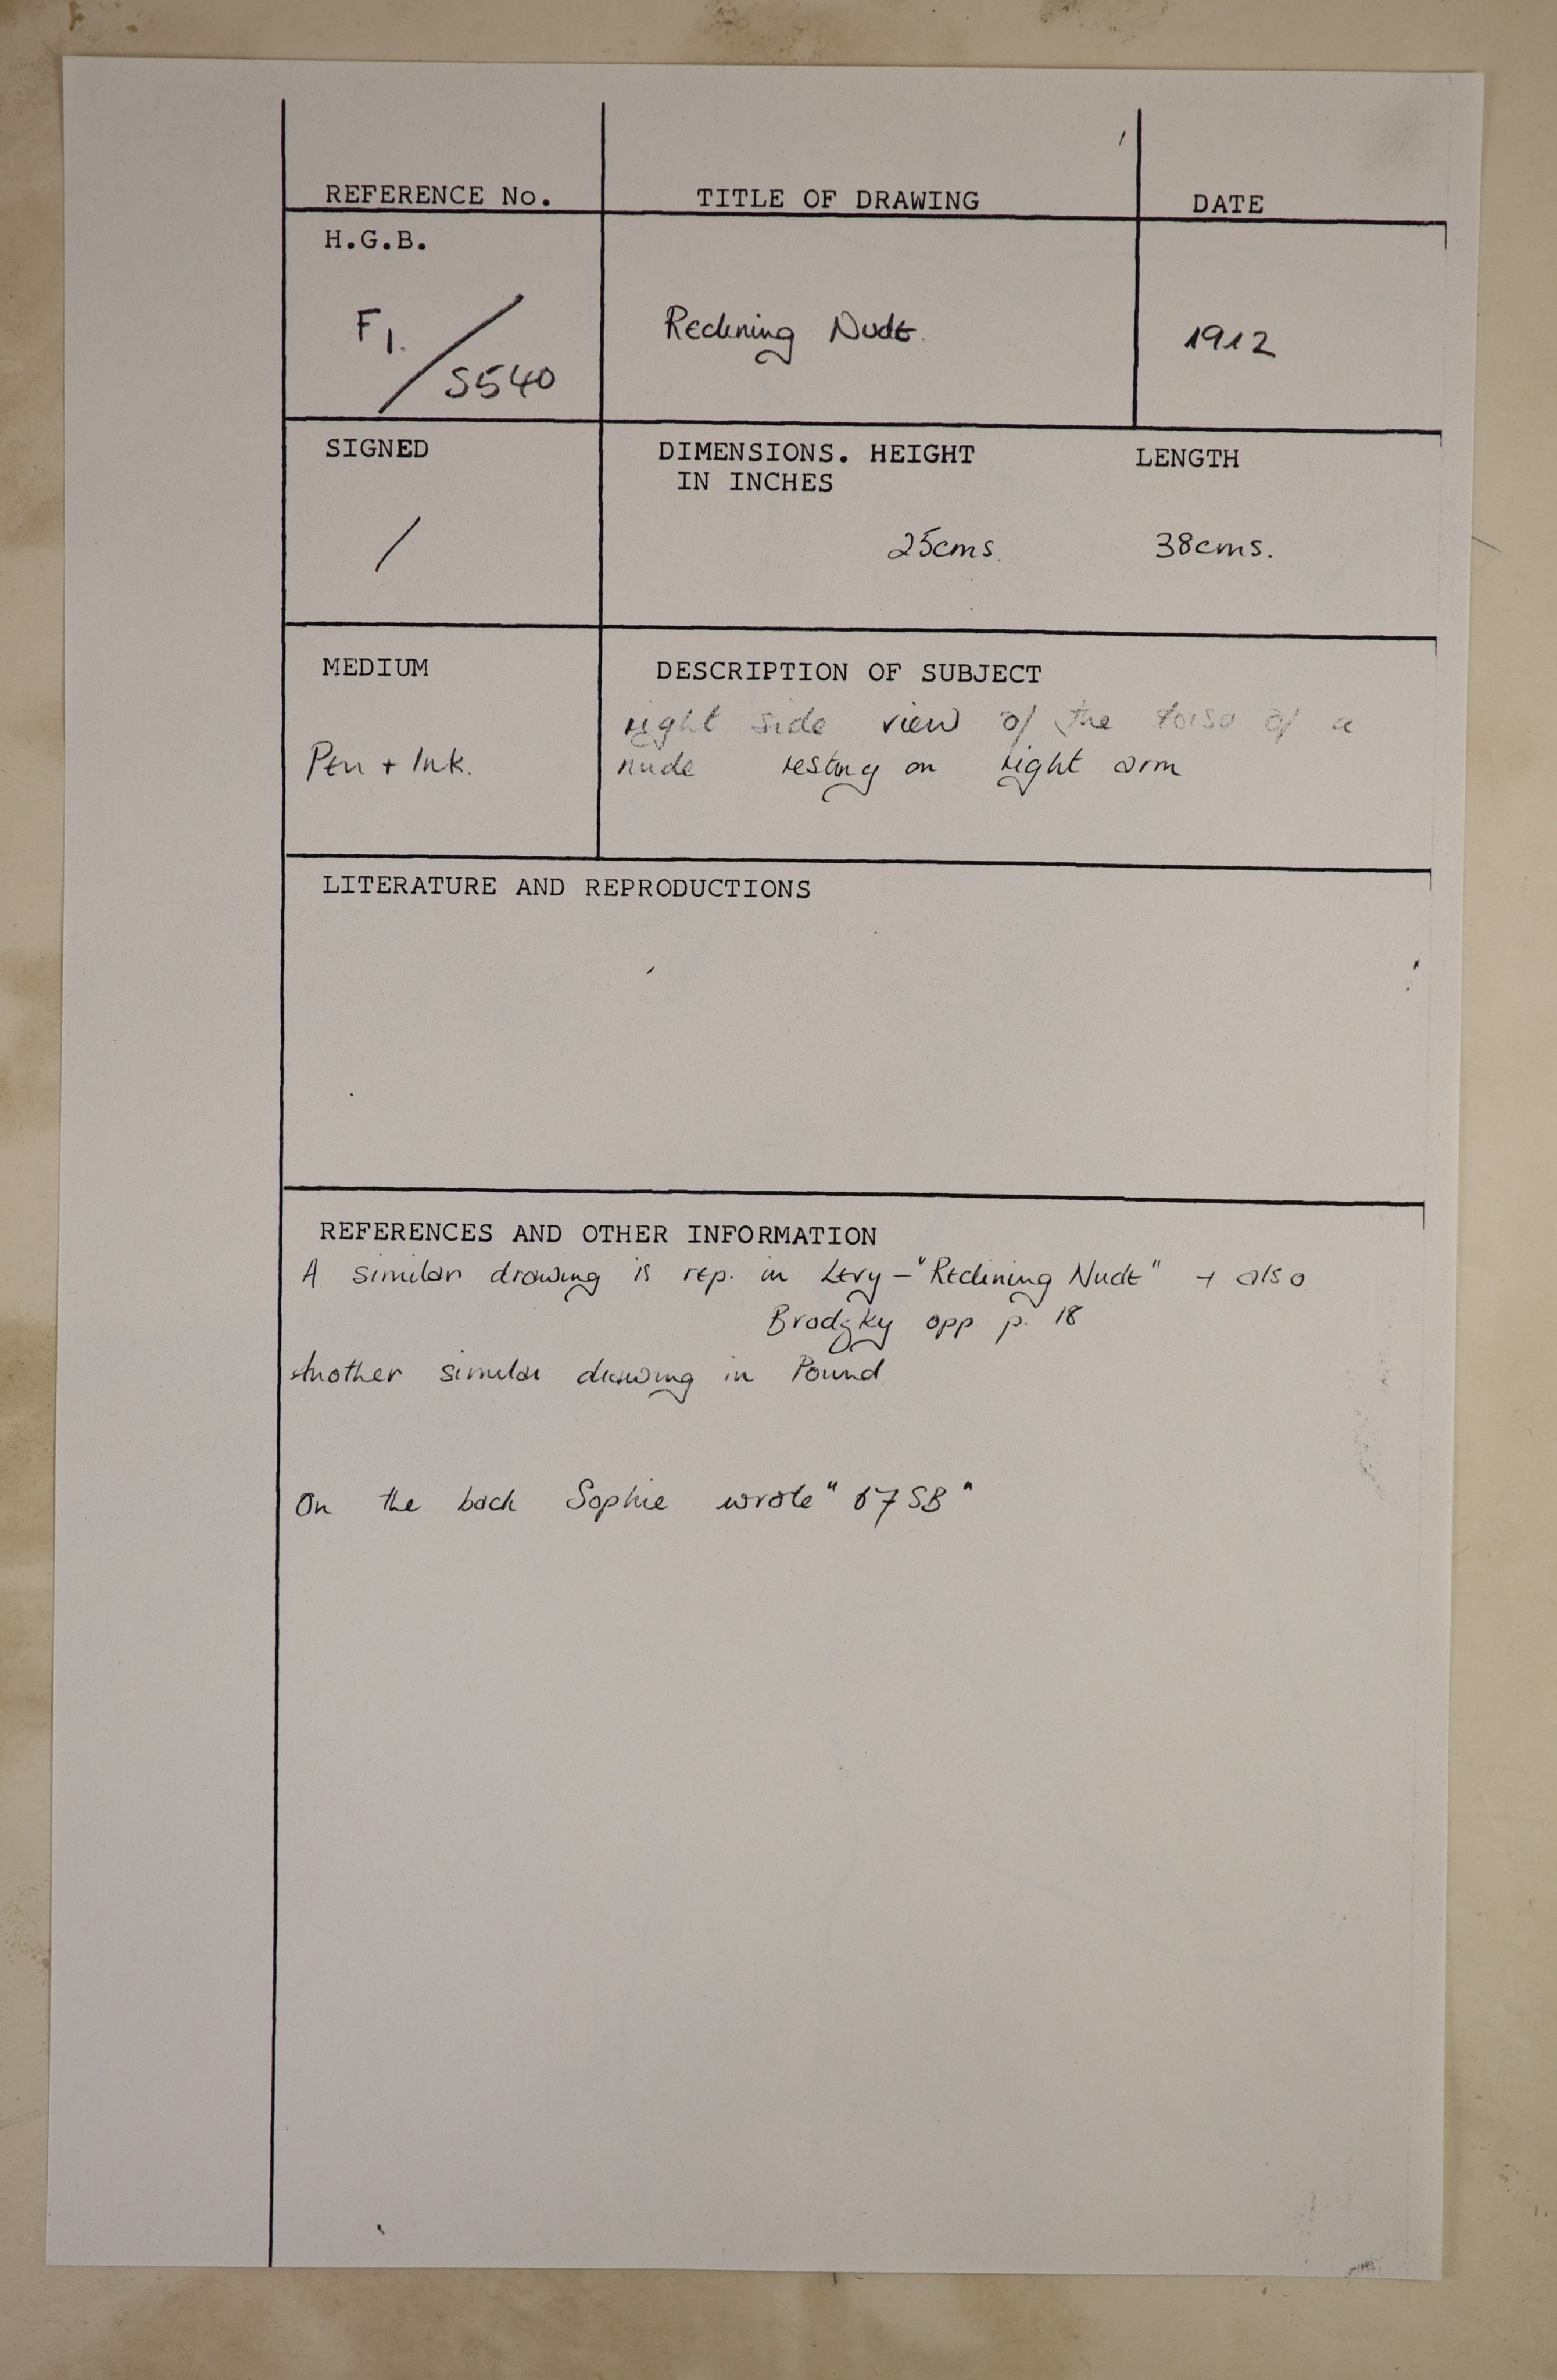 REFERENCE No. TITLE OF DRAWING DATE
H.G.B.
F1. / S540 Reclining Nude. 1912
SIGNED DIMENSIONS. HEIGHT LENGTH
IN INCHES
/ 25cms. 38cms.
MEDIUM DESCRIPTION OF SUBJECT
right side view of the torso of a
Pen + Ink. nude resting on right arm
LITERATURE AND REPRODUCTIONS
REFERENCES AND OTHER INFORMATION
A similar drawing is rep. in Levy - "Reclining Nude" + also
Brodzky opp p. 18
Another similar drawing in Pound
On the back Sophie wrote " 67 SB "